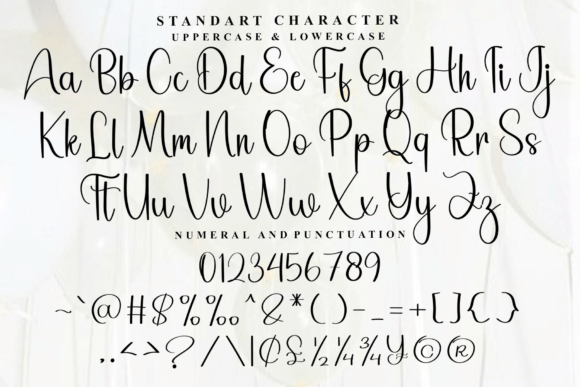 STANDART CHARACTER
UPPERCASE & LOWERCASE
Aa Bb Cc Dd Ee Ff Gg Hh Ii Jj
Kk Ll Mm Nn Oo Pp Qq Rr Ss
Tt Uu Vv Ww Xx Yy Zz
NUMERAL AND PUNCTUATION
0123456789
~`@#$%‰^&*()-_=+[]{}
.,<>?/\|₵£½¼¾¥©®